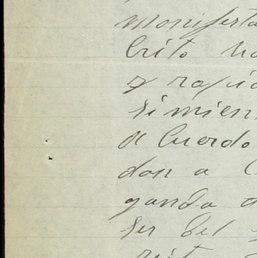 manifesta
crito ha
y rapid
simien
acuerdo
don a
ganda
ser del